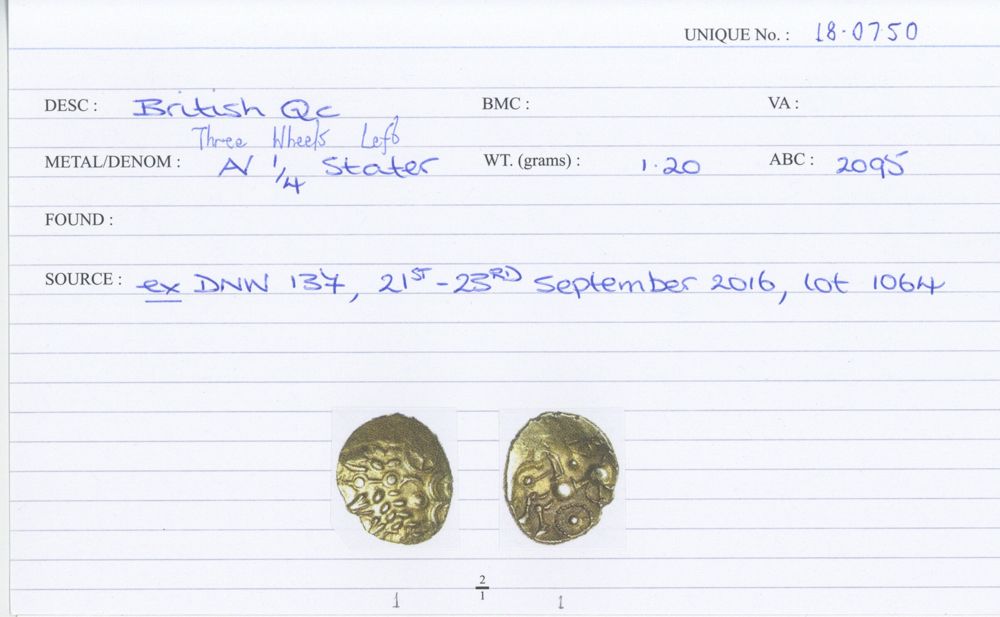 UNIQUE No. : 18·0750
DESC : British Qc BMC : VA :
Three Wheels Left
METAL/DENOM : AV 1/4 Stater WT. (grams) : 1·20 ABC : 2095
FOUND :
SOURCE : ex DNW 137, 21ST-23RD September 2016, lot 1064
2/1
1 1